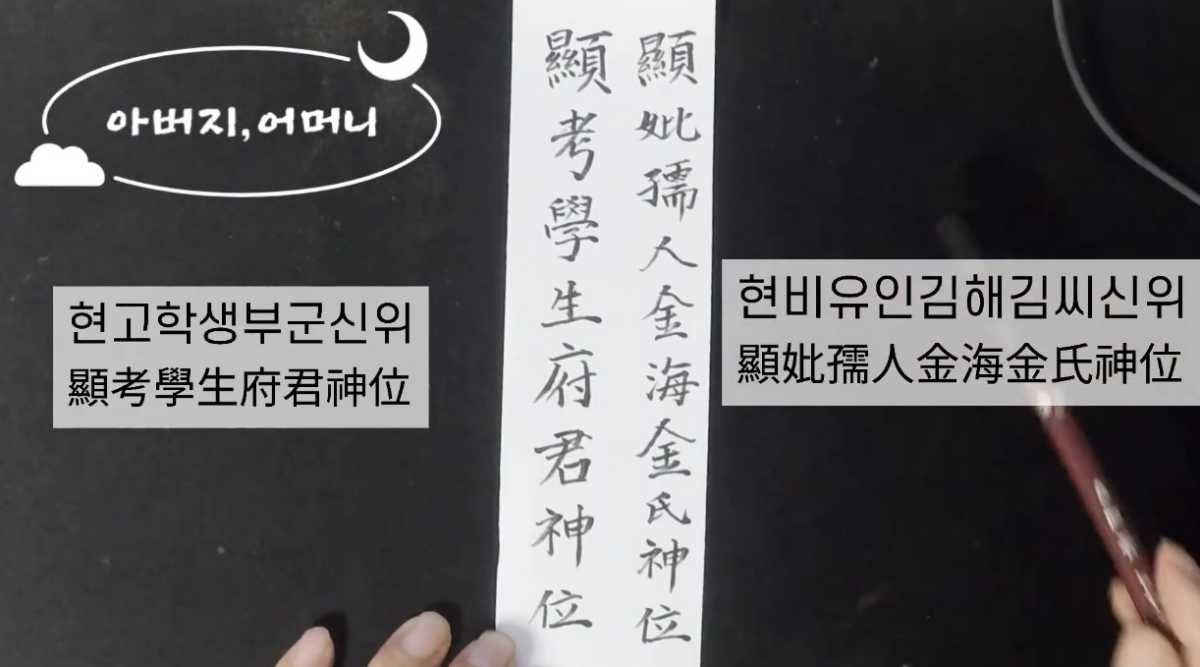 아버지,어머니
顯考學生府君神位
顯妣孺人金海金氏神位
현고학생부군신위
顯考學生府君神位
현비유인김해김씨신위
顯妣孺人金海金氏神位